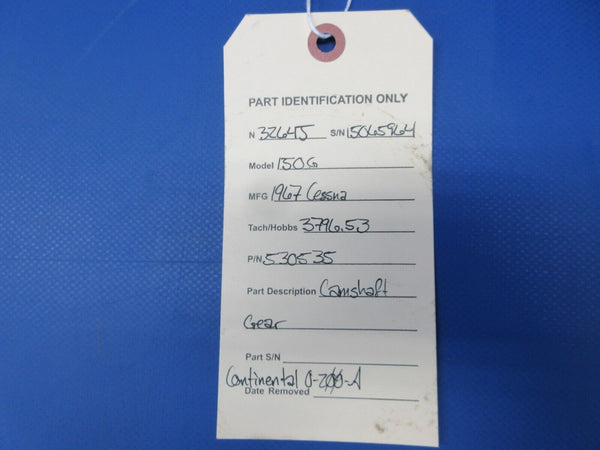 PART IDENTIFICATION ONLY
N 3264J S/N 15065964
Model 150G
MFG 1967 Cessna
Tach/Hobbs 3796.53
P/N 530535
Part Description Camshaft
Gear
Part S/N
Continental O-200-A
Date Removed